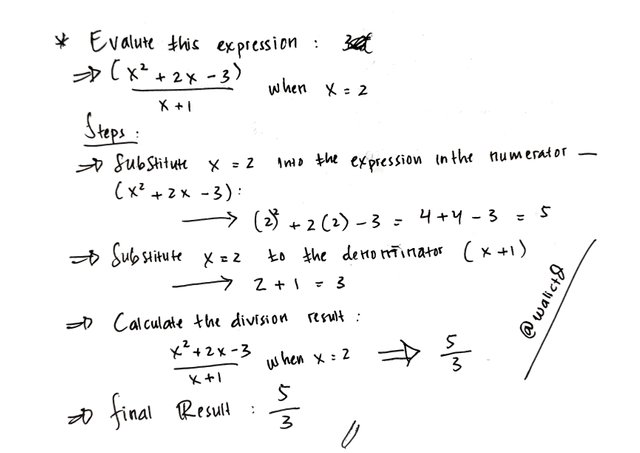 * Evalute this expression :
⇒ (x² + 2x - 3) / x + 1 when x = 2
Steps :
⇒ Substitute x = 2 into the expression in the numerator —
(x² + 2x - 3) :
→ (2)² + 2(2) - 3 = 4 + 4 - 3 = 5
⇒ Substitute x = 2 to the denominator (x + 1)
→ 2 + 1 = 3
@walictd
⇒ Calculate the division result :
x² + 2x - 3 / x + 1 when x = 2 ⇒ 5/3
⇒ final Result : 5/3